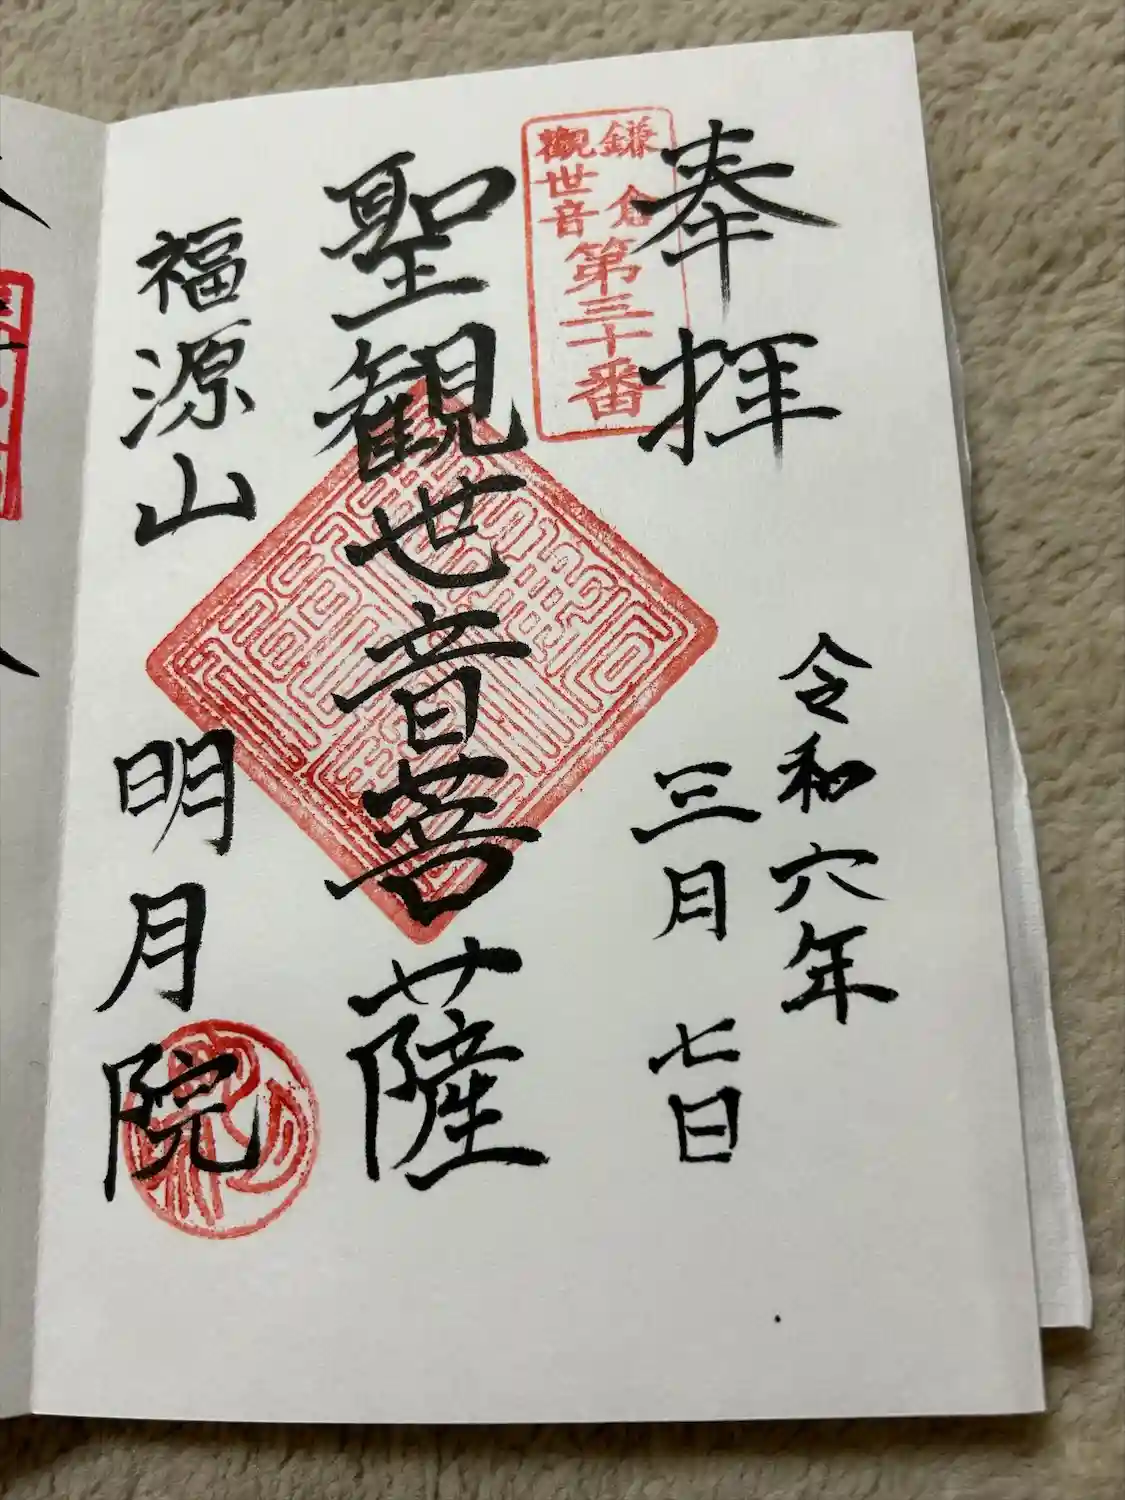 奉拝
令和六年
三月七日
鎌倉
觀世音
第三十番
聖観世音菩薩
福源山
明月院